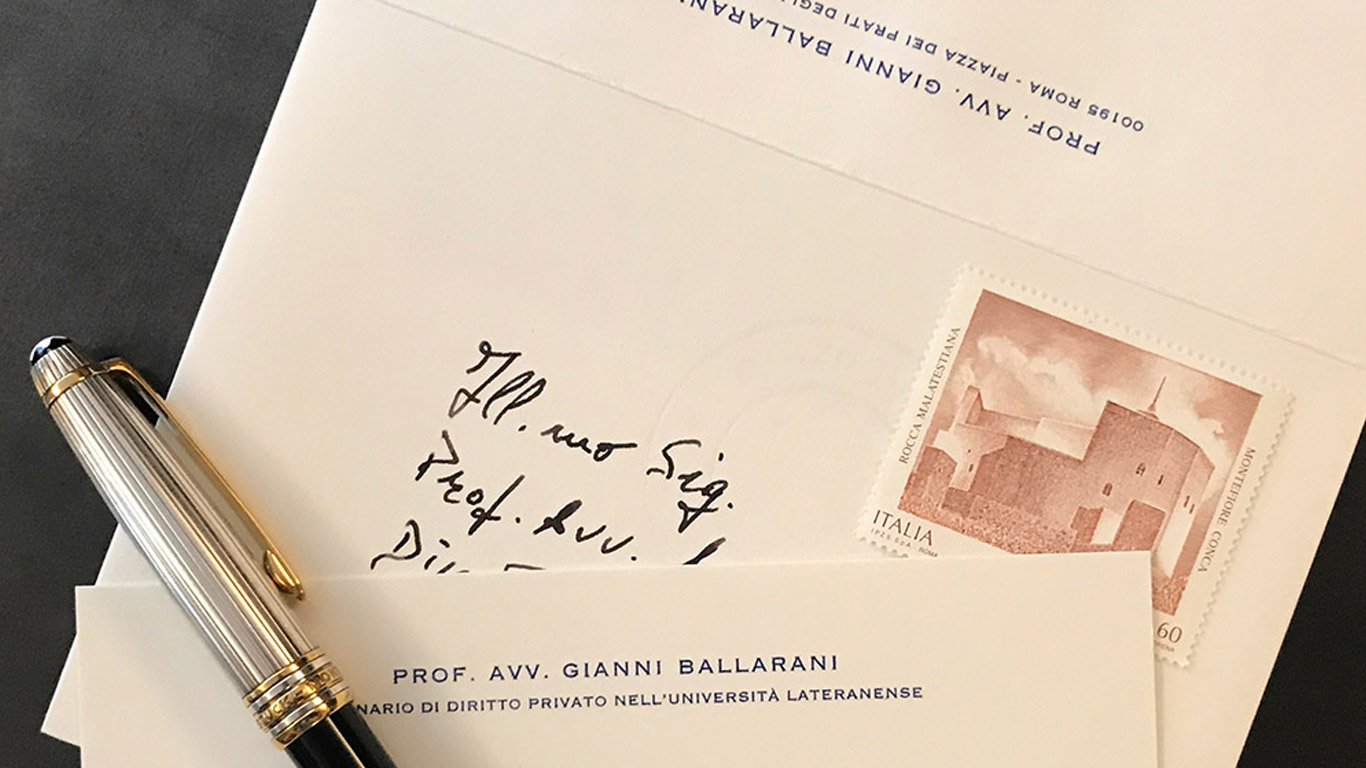 PROF. AVV. GIANNI BALLARANI
00195 ROMA - PIAZZA DEI PRATI
Ill.mo Sig.
Prof. Avv.
ROCCA MALATESTIANA
MONTEFIORE CONCA
ITALIA
I.P.Z.S. S.p.A. - ROMA
60
PROF. AVV. GIANNI BALLARANI
NARIO DI DIRITTO PRIVATO NELL'UNIVERSITÀ LATERANENSE